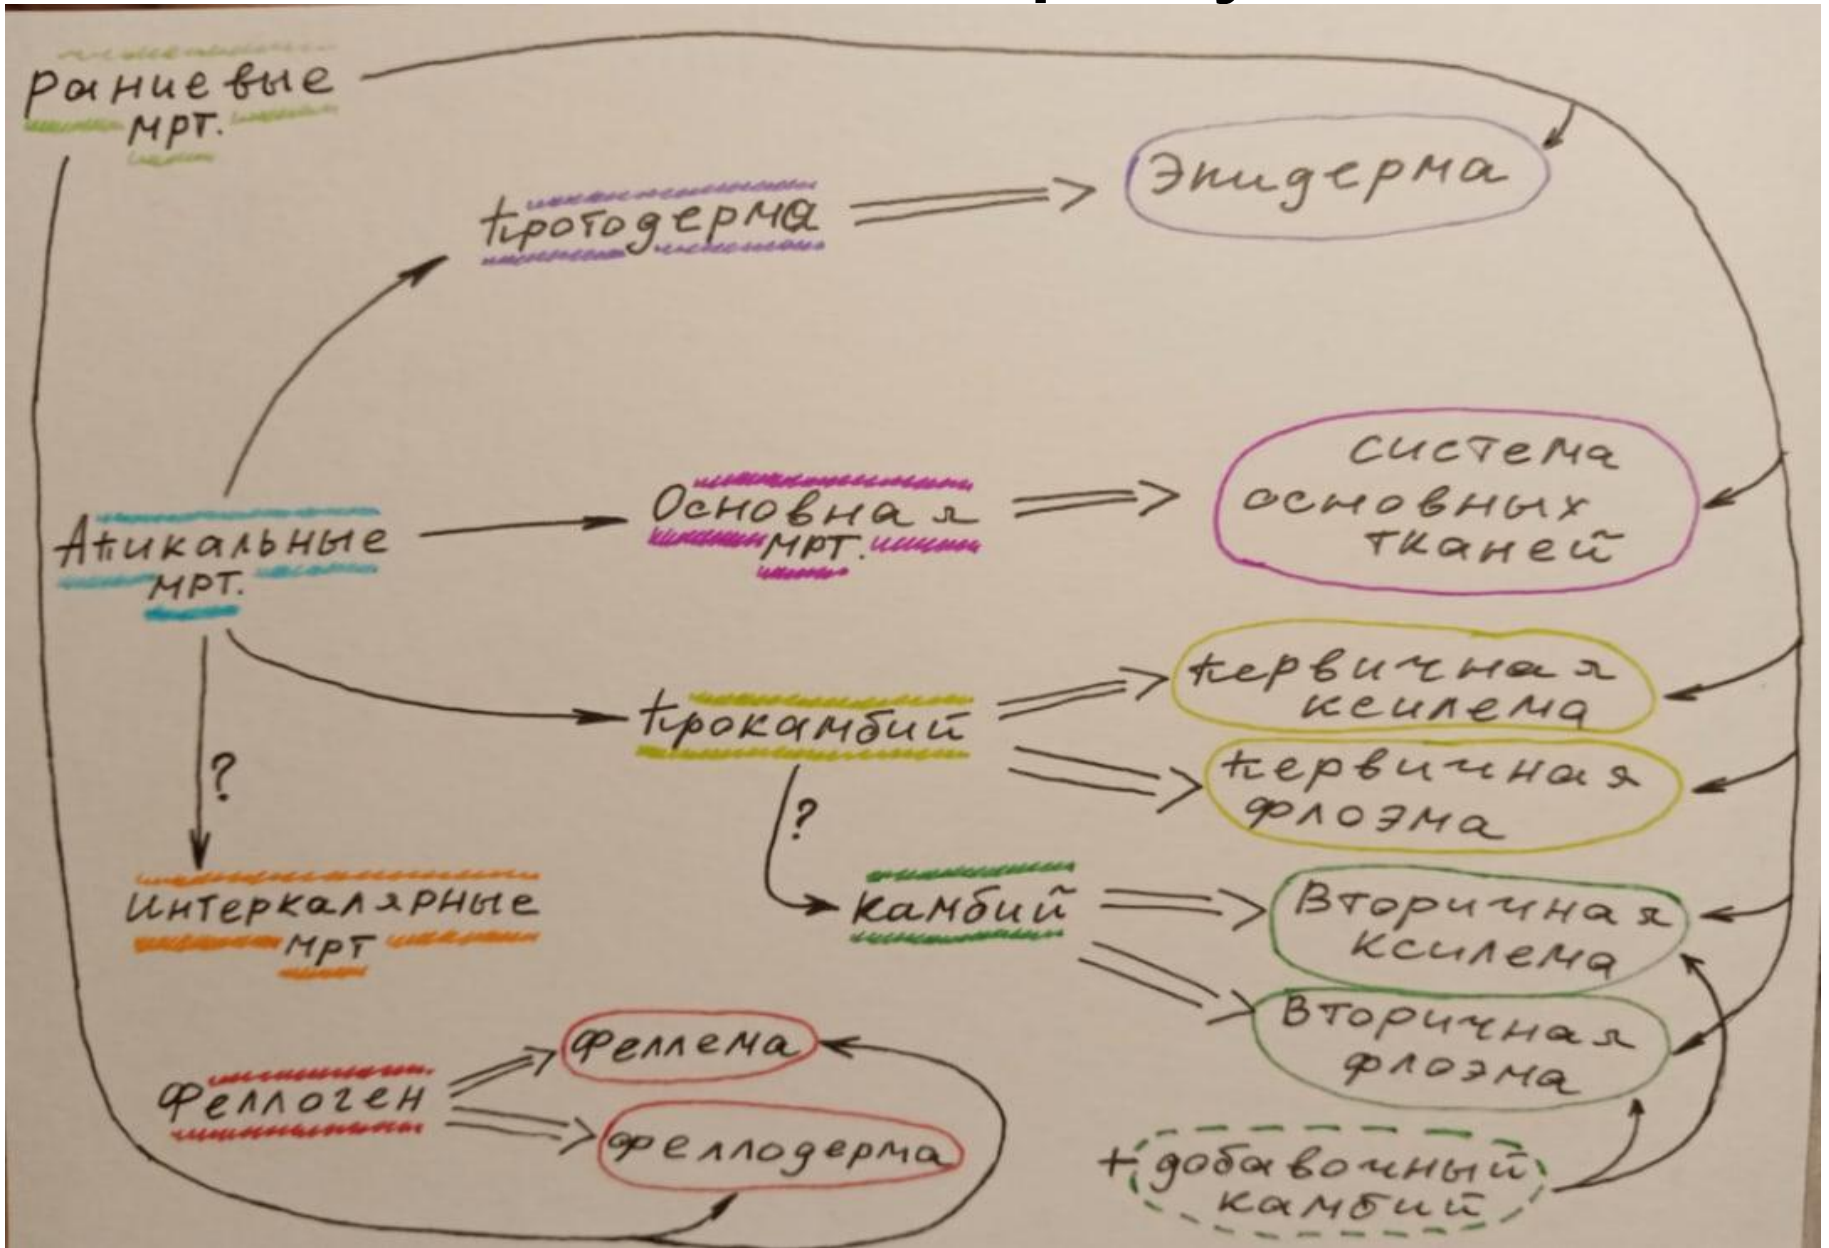 Раниевые
мрт.
Протодерма
Эпидерма
Апикальные
мрт.
Основная
мрт.
система
основных
тканей
Прокамбий
Первичная
ксилема
Первичная
флоэма
?
?
Интеркалярные
мрт
камбий
Вторичная
ксилема
Вторичная
флоэма
Феллоген
Феллема
Феллодерма
+ добавочный
камбий